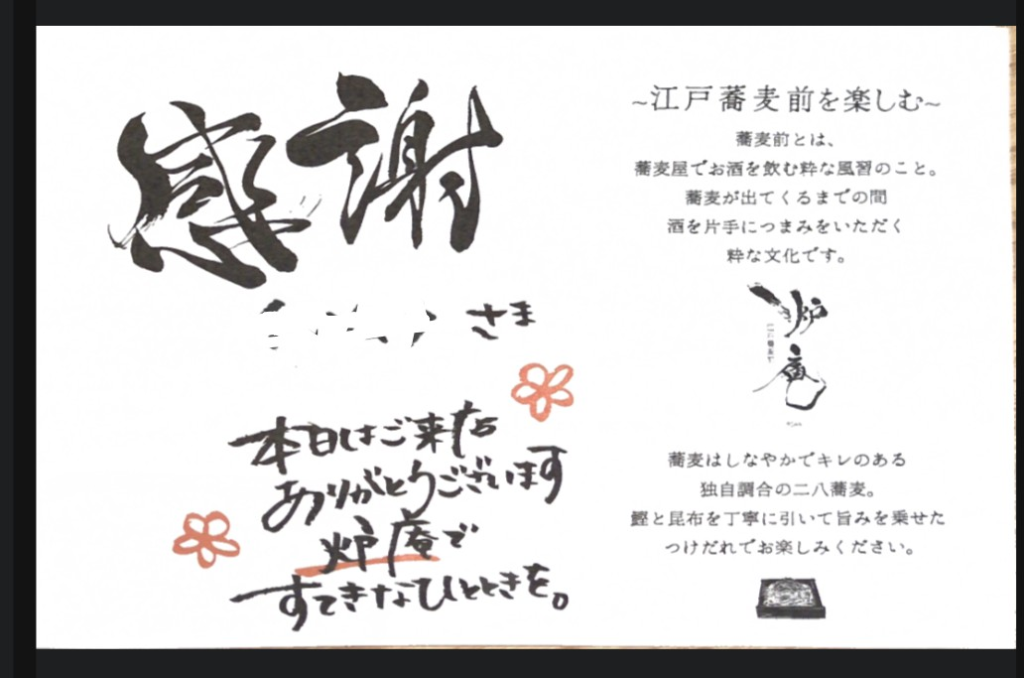 感謝
さま
本日はご来店
ありがとうございます
炉庵で
すてきなひとときを。
~江戸蕎麦前を楽しむ~
蕎麦前とは、
蕎麦屋でお酒を飲む粋な風習のこと。
蕎麦が出てくるまでの間
酒を片手につまみをいただく
粋な文化です。
炉庵
蕎麦はしなやかでキレのある
独自調合の二八蕎麦。
鰹と昆布を丁寧に引いて旨みを乗せた
つけだれでお楽しみください。